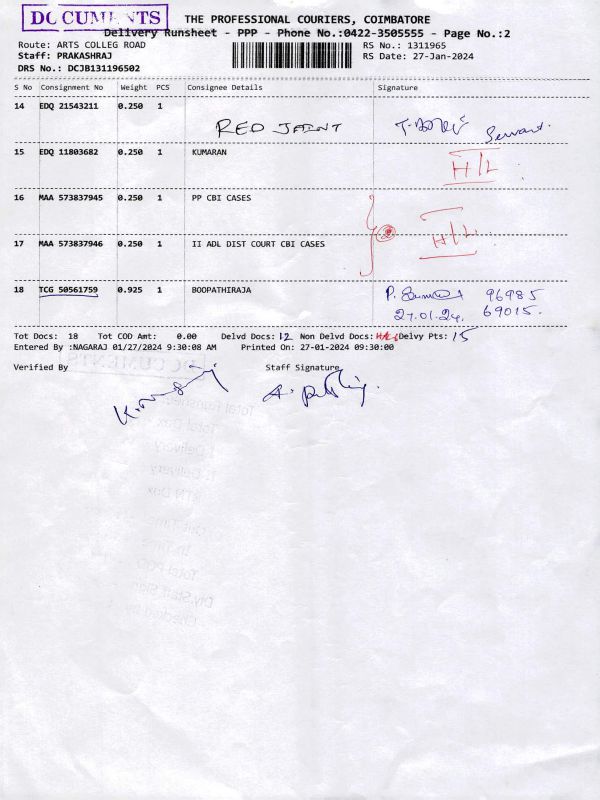 DOCUMENTS
THE PROFESSIONAL COURIERS, COIMBATORE
Delivery Runsheet - PPP - Phone No.:0422-3505555 - Page No.:2
Route: ARTS COLLEG ROAD RS No.: 1311965
Staff: PRAKASHRAJ RS Date: 27-Jan-2024
DRS No.: DCJB131196502
S No Consignment No Weight PCS Consignee Details Signature
14 EDQ 21543211 0.250 1
RED JAINT Servant.
15 EDQ 11803682 0.250 1 KUMARAN
H/L
16 MAA 573837945 0.250 1 PP CBI CASES
H/L
17 MAA 573837946 0.250 1 II ADL DIST COURT CBI CASES
18 TCG 50561759 0.925 1 BOOPATHIRAJA
96985
27.01.24. 69015.
Tot Docs: 18 Tot COD Amt: 0.00 Delvd Docs: 12 Non Delvd Docs: Delvy Pts: 15
Entered By :NAGARAJ 01/27/2024 9:30:08 AM Printed On: 27-01-2024 09:30:00
Verified By Staff Signature